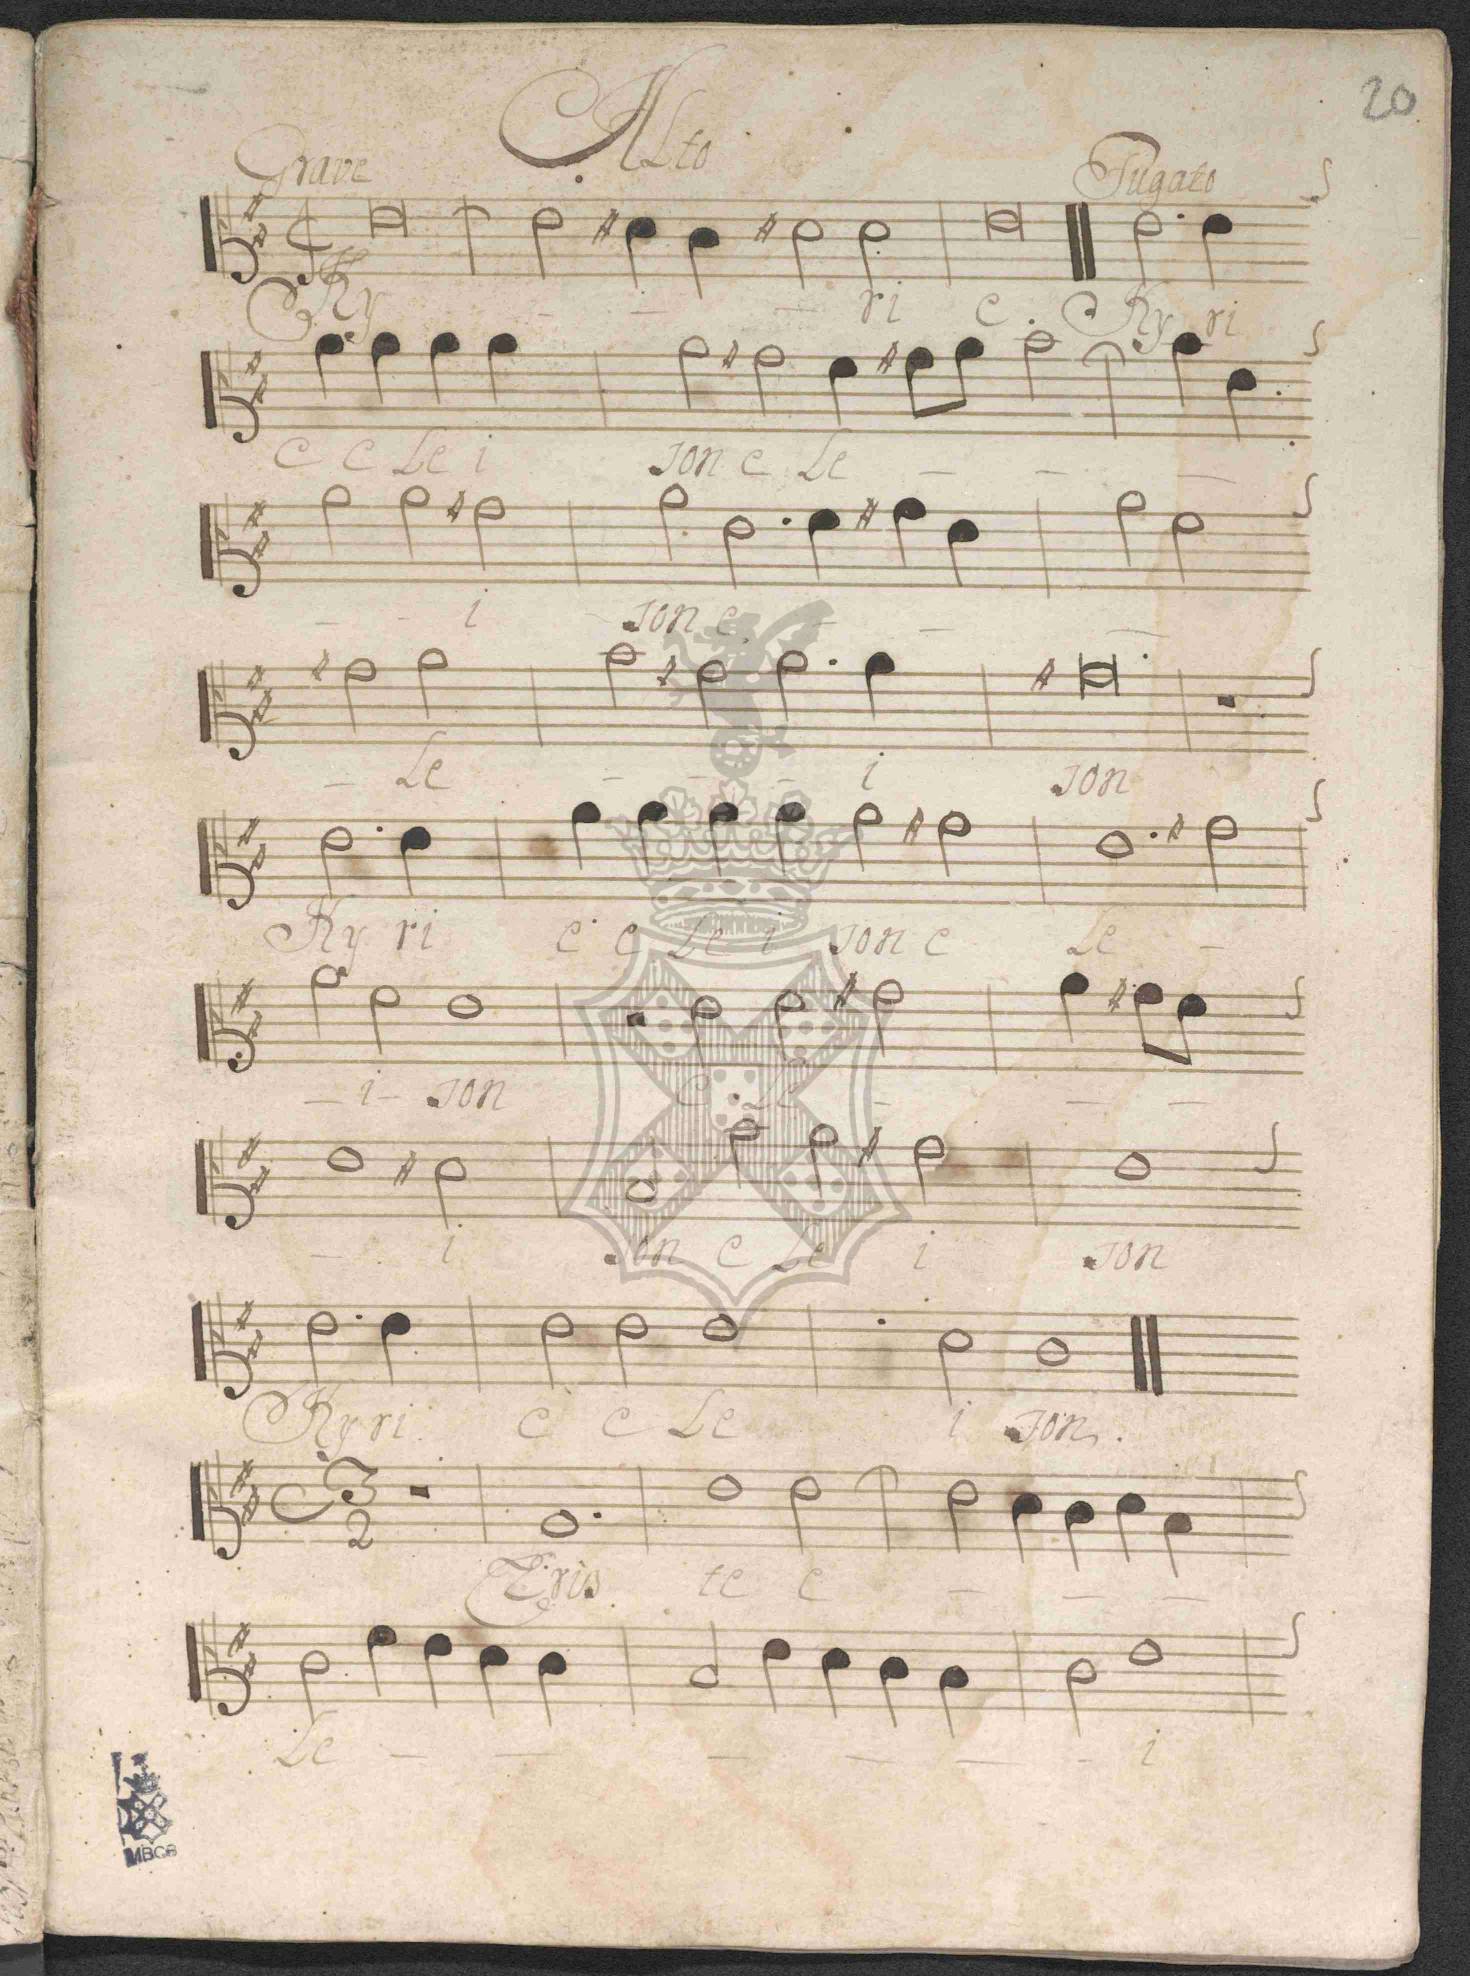 20
Alto
Grave Fugato
Ky - - - ri e. Ky ri
e e Le i son e Le - - -
- - i son e - - -
- Le - - - i son
Ky ri e e Le i son e Le -
- i - son e Le - - -
- i son e Le i son
Ky ri e e Le i son.
3
2
Xris te e - - -
Le - - - - - - i
MBCB